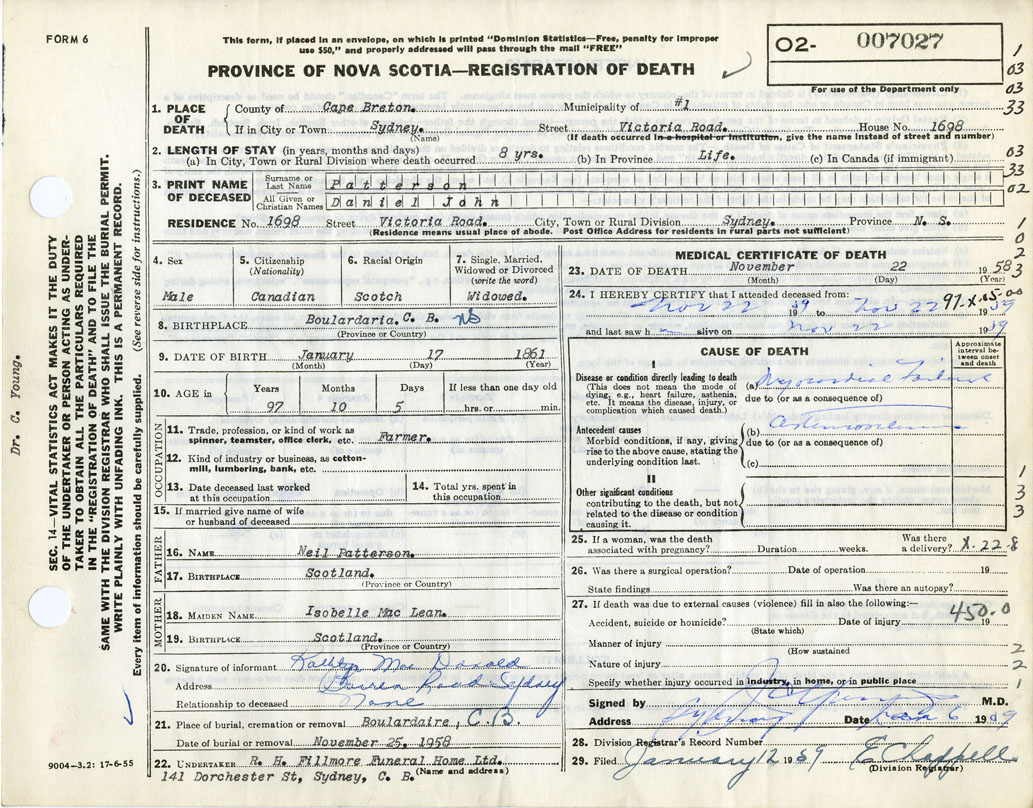 FORM 6
This form, if placed in an envelope, on which is printed "Dominion Statistics—Free, penalty for improper
use $50," and properly addressed will pass through the mail "FREE"
PROVINCE OF NOVA SCOTIA—REGISTRATION OF DEATH
O2- 007027
For use of the Department only
1. PLACE OF DEATH
County of Cape Breton. Municipality of #1
If in City or Town Sydney. Street Victoria Road. House No. 1698
(Name) (If death occurred in a hospital or institution, give the name instead of street and number)
2. LENGTH OF STAY (in years, months and days)
(a) In City, Town or Rural Division where death occurred 8 yrs. (b) In Province Life. (c) In Canada (if immigrant)
3. PRINT NAME OF DECEASED
Surname or Last Name Patterson
All Given or Christian Names Daniel John
RESIDENCE No. 1698 Street Victoria Road. City, Town or Rural Division Sydney. Province N. S.
(Residence means usual place of abode. Post Office Address for residents in rural parts not sufficient)
4. Sex
Male
5. Citizenship
(Nationality)
Canadian
6. Racial Origin
Scotch
7. Single, Married,
Widowed or Divorced
(write the word)
Widowed.
8. BIRTHPLACE Boulardaria. C. B. NS
(Province or Country)
9. DATE OF BIRTH January 17 1861
(Month) (Day) (Year)
10. AGE in
Years Months Days If less than one day old
97 10 5 hrs. or min.
OCCUPATION
11. Trade, profession, or kind of work as
spinner, teamster, office clerk, etc. Farmer.
12. Kind of industry or business, as cotton-
mill, lumbering, bank, etc.
13. Date deceased last worked
at this occupation
14. Total yrs. spent in
this occupation
15. If married give name of wife
or husband of deceased
FATHER
16. NAME Neil Patterson.
17. BIRTHPLACE Scotland.
(Province or Country)
MOTHER
18. MAIDEN NAME Isobelle Mac Lean.
19. BIRTHPLACE Scotland.
(Province or Country)
20. Signature of informant Mac Donald
Address Road Sydney
Relationship to deceased
21. Place of burial, cremation or removal Boulardaire, C.B.
Date of burial or removal November 25, 1958
22. UNDERTAKER R. H. Fillmore Funeral Home Ltd.
141 Dorchester St, Sydney, C. B. (Name and address)
MEDICAL CERTIFICATE OF DEATH
23. DATE OF DEATH November 22 1958
(Month) (Day) (Year)
24. I HEREBY CERTIFY that I attended deceased from:
Nov 22 1959 to Nov 22 1959
and last saw h alive on Nov 22 1959
CAUSE OF DEATH
Approximate interval between onset and death
I
Disease or condition directly leading to death
(This does not mean the mode of
dying, e.g., heart failure, asthenia,
etc. It means the disease, injury, or
complication which caused death.)
(a) Myocardial Failure
due to (or as a consequence of)
Antecedent causes
Morbid conditions, if any, giving
rise to the above cause, stating the
underlying condition last.
(b)
due to (or as a consequence of)
(c)
II
Other significant conditions
contributing to the death, but not
related to the disease or condition
causing it.
25. If a woman, was the death
associated with pregnancy? Duration weeks. Was there
a delivery? X-22-8
26. Was there a surgical operation? Date of operation 19
State findings Was there an autopsy?
27. If death was due to external causes (violence) fill in also the following:—
450-0
Accident, suicide or homicide? Date of injury 19
(State which)
Manner of injury
(How sustained
Nature of injury
Specify whether injury occurred in industry, in home, or in public place
Signed by M.D.
Address Sydney Date Jan 6 1959
28. Division Registrar's Record Number
29. Filed January 12 1959 E Chappell
(Division Registrar)
1
03
03
33
03
33
02
1
0
2
3
1
3
3
2
2
1
Dr. C. Young.
SEC. 14—VITAL STATISTICS ACT MAKES IT THE DUTY
OF THE UNDERTAKER OR PERSON ACTING AS UNDER-
TAKER TO OBTAIN ALL THE PARTICULARS REQUIRED
IN THE "REGISTRATION OF DEATH" AND TO FILE THE
SAME WITH THE DIVISION REGISTRAR WHO SHALL ISSUE THE BURIAL PERMIT.
WRITE PLAINLY WITH UNFADING INK. THIS IS A PERMANENT RECORD.
Every item of information should be carefully supplied. (See reverse side for instructions.)
9004—3.2: 17-6-55